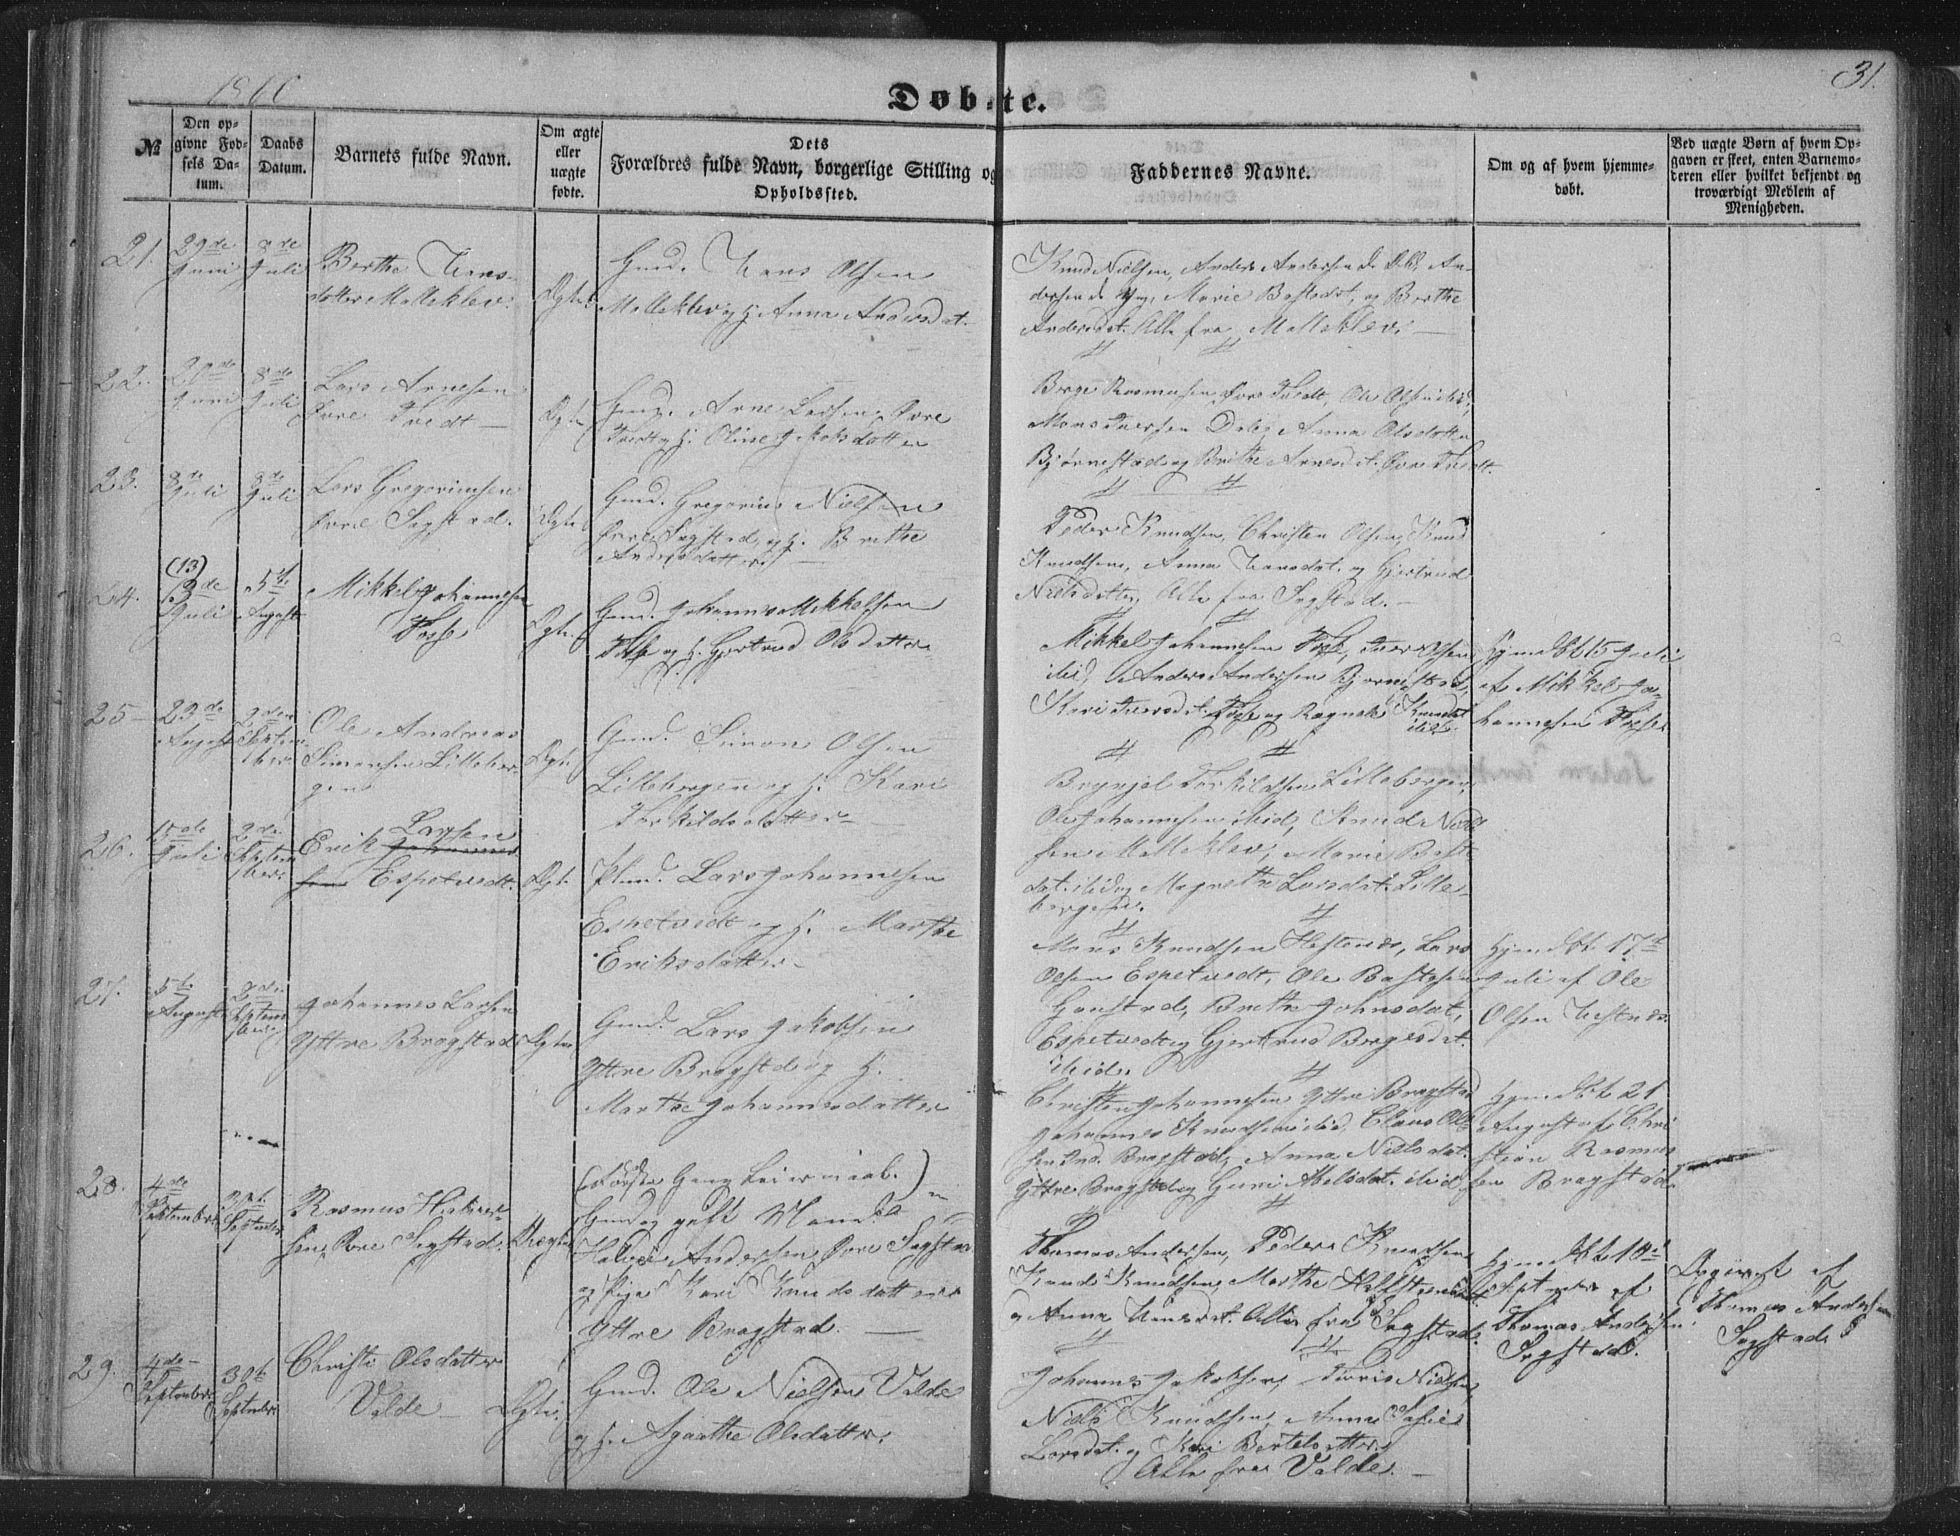 1860
31.
Døbte.
№
Den op-
givne Fød-
sels Da-
tum.
Daabs
Datum.
Barnets fulde Navn.
Om ægte
eller
uægte
fødte.
Dets
Forældres fulde Navn, borgerlige Stilling og
Opholdssted.
Faddernes Navne.
Om og af hvem hjemme-
døbt.
Ved uægte Børn af hvem Op-
gaven er skeet, enten Barnemo-
deren eller hvilket bekjendt og
troværdigt Medlem af
Menigheden.
21.
29de
Juni
8de
Juli
Berthe Hans-
datter Malleklev.
Ægte.
Gmd. Hans Olsen
Malleklev og H. Anna Andersdat.
Knud Nielsen, Anders Andersen
dersen Marie Bastedat, og Berthe
Andersdat. Alle fra Malleklev.
22.
Juni
8de
Juli
Lars Arnesen
Øvre Tvedt
Ægte
Gmd. Arne Larsen Øvre
Tvedt og H. Oline Jakobsdatter
Børge Rasmussen Øvre Tvedt, Ole Olsen ibid,
Mons Iversen Anna Olsdatter
Bjørnestad og Brithe Arnesdat. Øvre Tvedt.
23.
8de
Juli
8de
Juli
Lars Gregoriussen
Øvre Sagstad.
Ægte
Gmd. Gregorius Nielsen
Øvre Sagstad, og H. Brithe
Andersdatter
Peder Knudsen, Christen Olsen, Knud
Knudsen, Anna Hansdat. og Gjertrud
Nielsdatter, Alle fra Sagstad.
24.
(13)
13de
Juli
5te
August
Mikkel Johannessen
Fosse
Ægte.
Gmd. Johannes Mikkelsen
Fosse og H. Gjertrud Olsdatter
Mikkel Johannesen Fosse, Iver Olsen
ibid, Anders Andersen Bjørnestad,
Kari Iversdat. Fosse og Ragnele Knudsdat
ibid.
Hjemdøbt 15 Juli
af Mikkel Jo-
hannesen Fosse
25
23de
August
2den
Septem
ber
Ole Andreas
Simonsen Lilleber-
gen
Ægte.
Gmd. Simon Olsen
Lillebergen og H. Kari
Torkildsdatter
Brynjel Torkildsen Lillebergen,
Ole Johannesen ibid, Knud Niel
sen Malleklev, Marie Baste
dat. ibid og Magrethe Larsdat. Lille
bergen.
26.
15de
Juli
2den
Septem
ber
Larsen
Erik Johannes
sen Espetvedt.
Ægte.
Plmd. Lars Johannesen
Espetvedt og H. Marthe
Eriksdatter
Mons Knudsen Hestnes, Lars
Olsen Espetvedt, Ole Bastesen
Brithe Johnsdat,
Espetvedt og Gjertrud Børgesdat.
ibid.
Hjemdøbt. 17te
Juli af Ole
Olsen Hestnes.
27.
5te
August
2den
Septem
ber
Johannes Larsen
Yttre Bragstad
Ægte
Gmd. Lars Jakobsen
Yttre Bragstad og H.
Marthe Johannesdatter
Christen Johannesen Yttre Bragstad
Johannes Knudsen ibid, Claus Ol
sen Ind. Bragstad, Anna Nielsdat.
Yttre Bragstad og Guri Abelsdat. ibid
Hjemdøbt 21
August af Chri
stian Rasmus
sen Bragstad
28.
4de
September
Septemb.
Rasmus
sen Øvre Sagstad.
Uægte
(Første Gang Leiermaal.)
Gmd og gift Mand
Andersen Øvre Sagstad
og Pige Kari Knudsdatter
Yttre Bragstad.
Thomas Andersen, Peder Knudsen
Knud Knudsen, Marthe
og Anna Alle fra Sagstad.
Hjemdøbt 10de
September af
Thomas Andersen
Sagstad.
Opgivet af
Thomas Andersen
Sagstad
29.
4de
September
30te
September
Christi Olsdatter
Valde
Ægte.
Gmd. Ole Nielsen Valde
og H. Agathe Olsdatter.
Johannes Jakobsen, Nielsen,
Niels Knudsen, Anna Sofie
Larsdat. og Kari Bertelsdatter
Alle fra Valde.